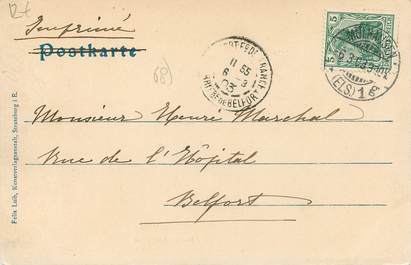 R+
Imprimé
Postkarte
68)
11 55
6 3
03
BELFORT
5
MÜLHAUSEN
(ELS) 1
Monsieur Henri Marchal
Rue de l'Hôpital
Belfort
Felix Luib, Kunstverlagsanstalt, Strassburg i E.